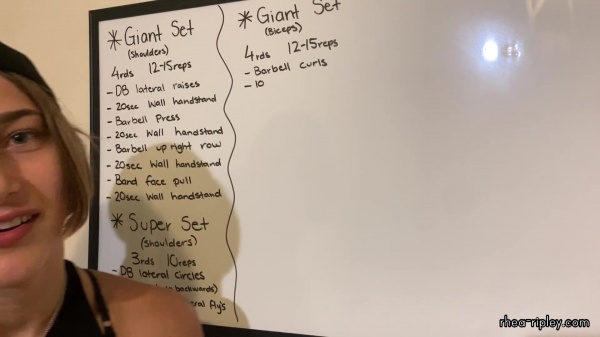 * Giant Set
(Shoulders)
4rds 12-15reps
- DB lateral raises
- 20sec Wall handstand
- Barbell Press
- 20sec Wall handstand
- Barbell upright row
- 20sec Wall handstand
- Band face pull
- 20sec Wall handstand
* Super Set
(Shoulders)
3rds 10reps
- DB lateral circles
backwards)
Fly's
* Giant Set
(Biceps)
4rds 12-15reps
- Barbell curls
- 10
rhea-ripley.com